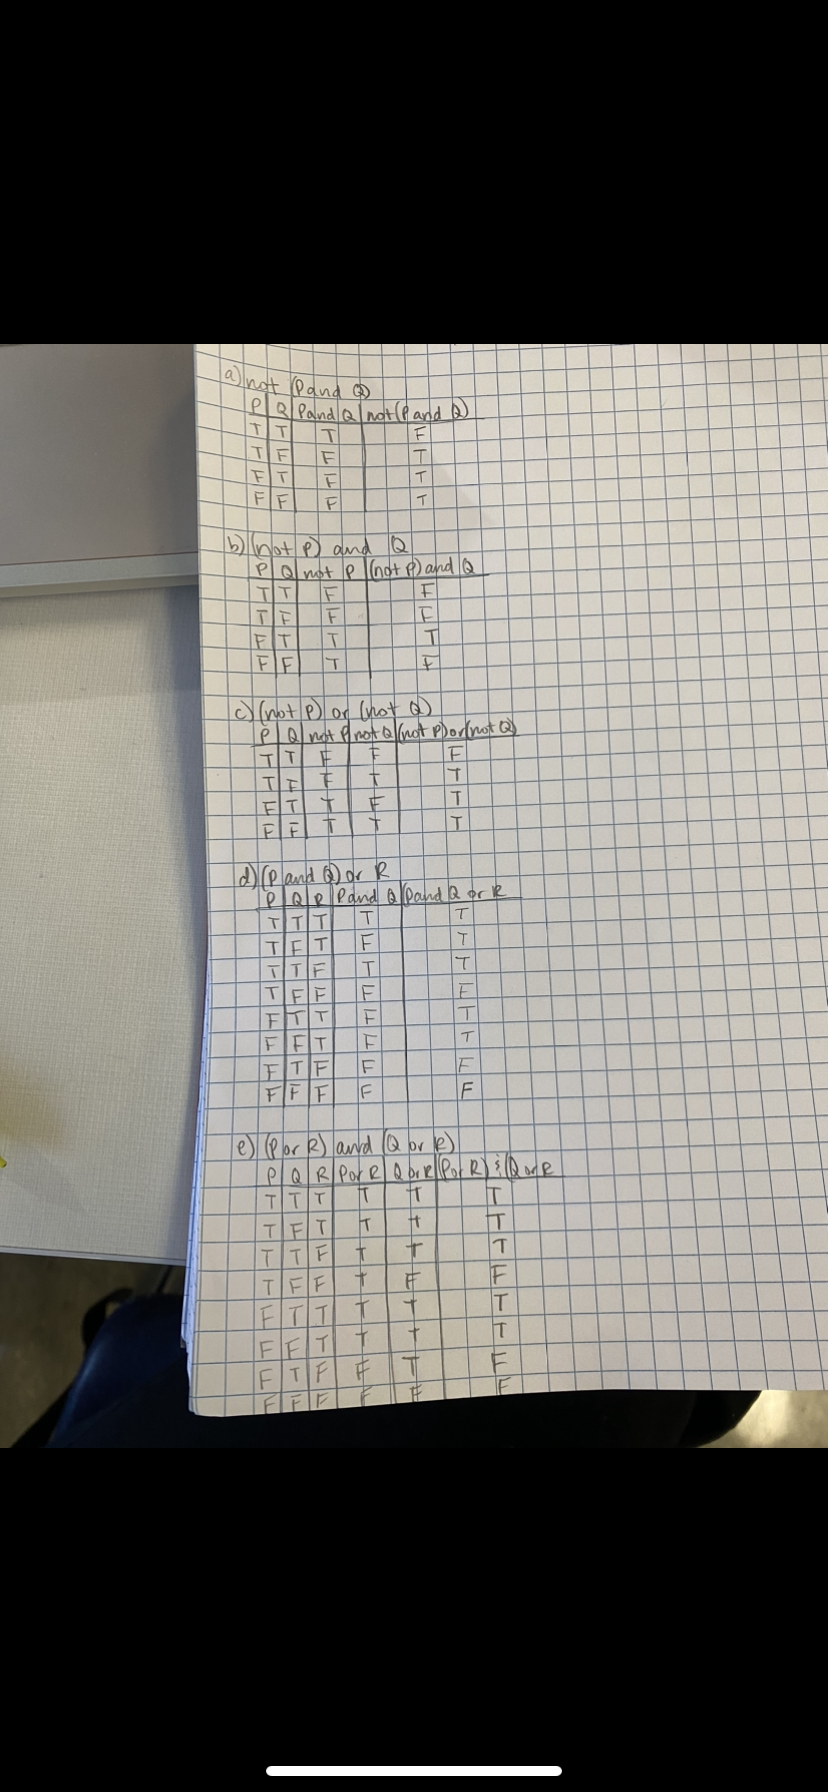 a) not (P and Q)
P Q P and Q not (P and Q)
T T T F
T F F T
F T F T
F F F T
b) (not P) and Q
P Q not P (not P) and Q
T T F F
T F F F
F T T T
F F T F
c) (not P) or (not Q)
P Q not P not Q (not P) or (not Q)
T T F F F
T F F T T
F T T F T
F F T T T
d) (P and Q) or R
P Q R P and Q (P and Q or R
T T T T T
T F T F T
T T F T T
T F F F F
F T T F T
F F T F T
F T F F F
F F F F F
e) (P or R) and (Q or R)
P Q R P or R Q or R (P or R) & (Q or R
T T T T T T
T F T T T T
T T F T T T
T F F T F F
F T T T T T
F F T T T T
F T F F T F
F F F F F F